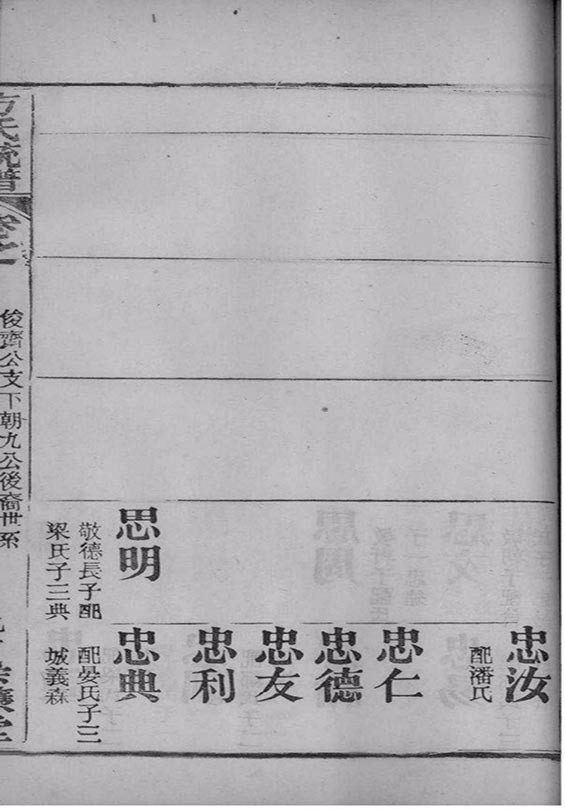 忠汝
配潘氏
忠仁
忠德
忠友
忠利
思明
敬德長子配
梁氏子三典
忠典
配晏氏子三
城義森
方氏統譜
俊齊公支下朝九公後裔世系